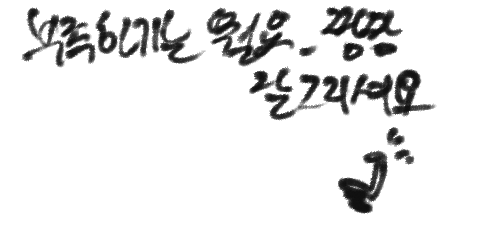 부족하기는 뭘요.. 짱짱
잘그리셔요